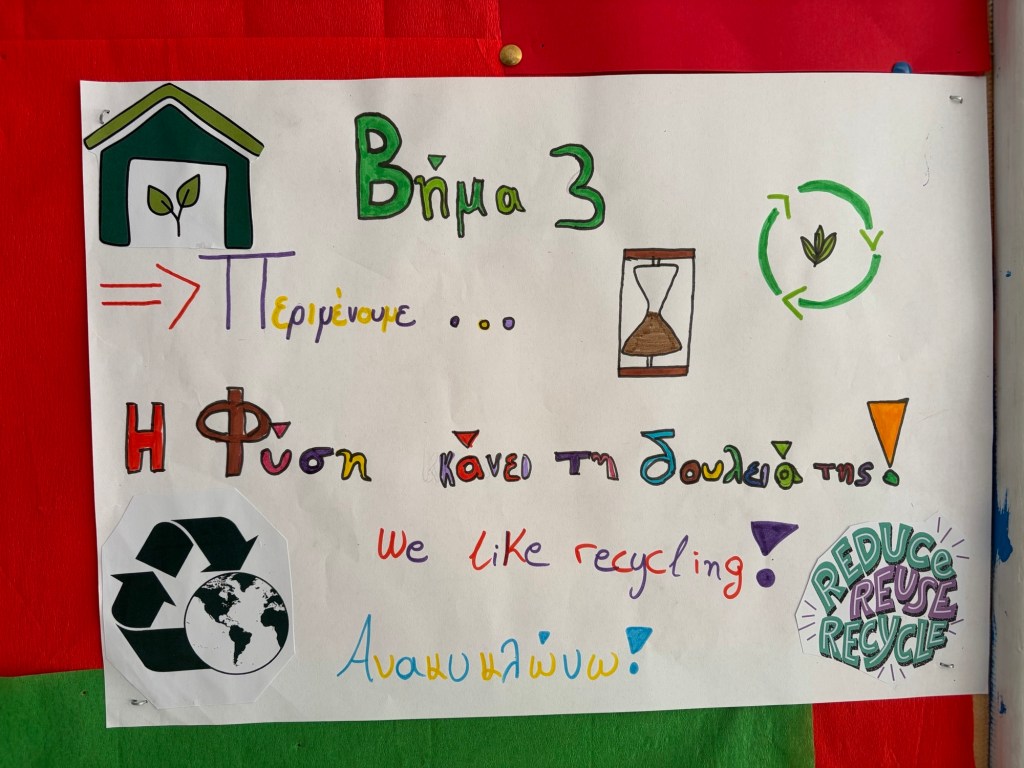 Βήμα 3
Περιμένουμε ...
Η Φύση κάνει τη δουλειά της!
We like recycling!
REDUCE
REUSE
RECYCLE
Ανακυκλώνω!